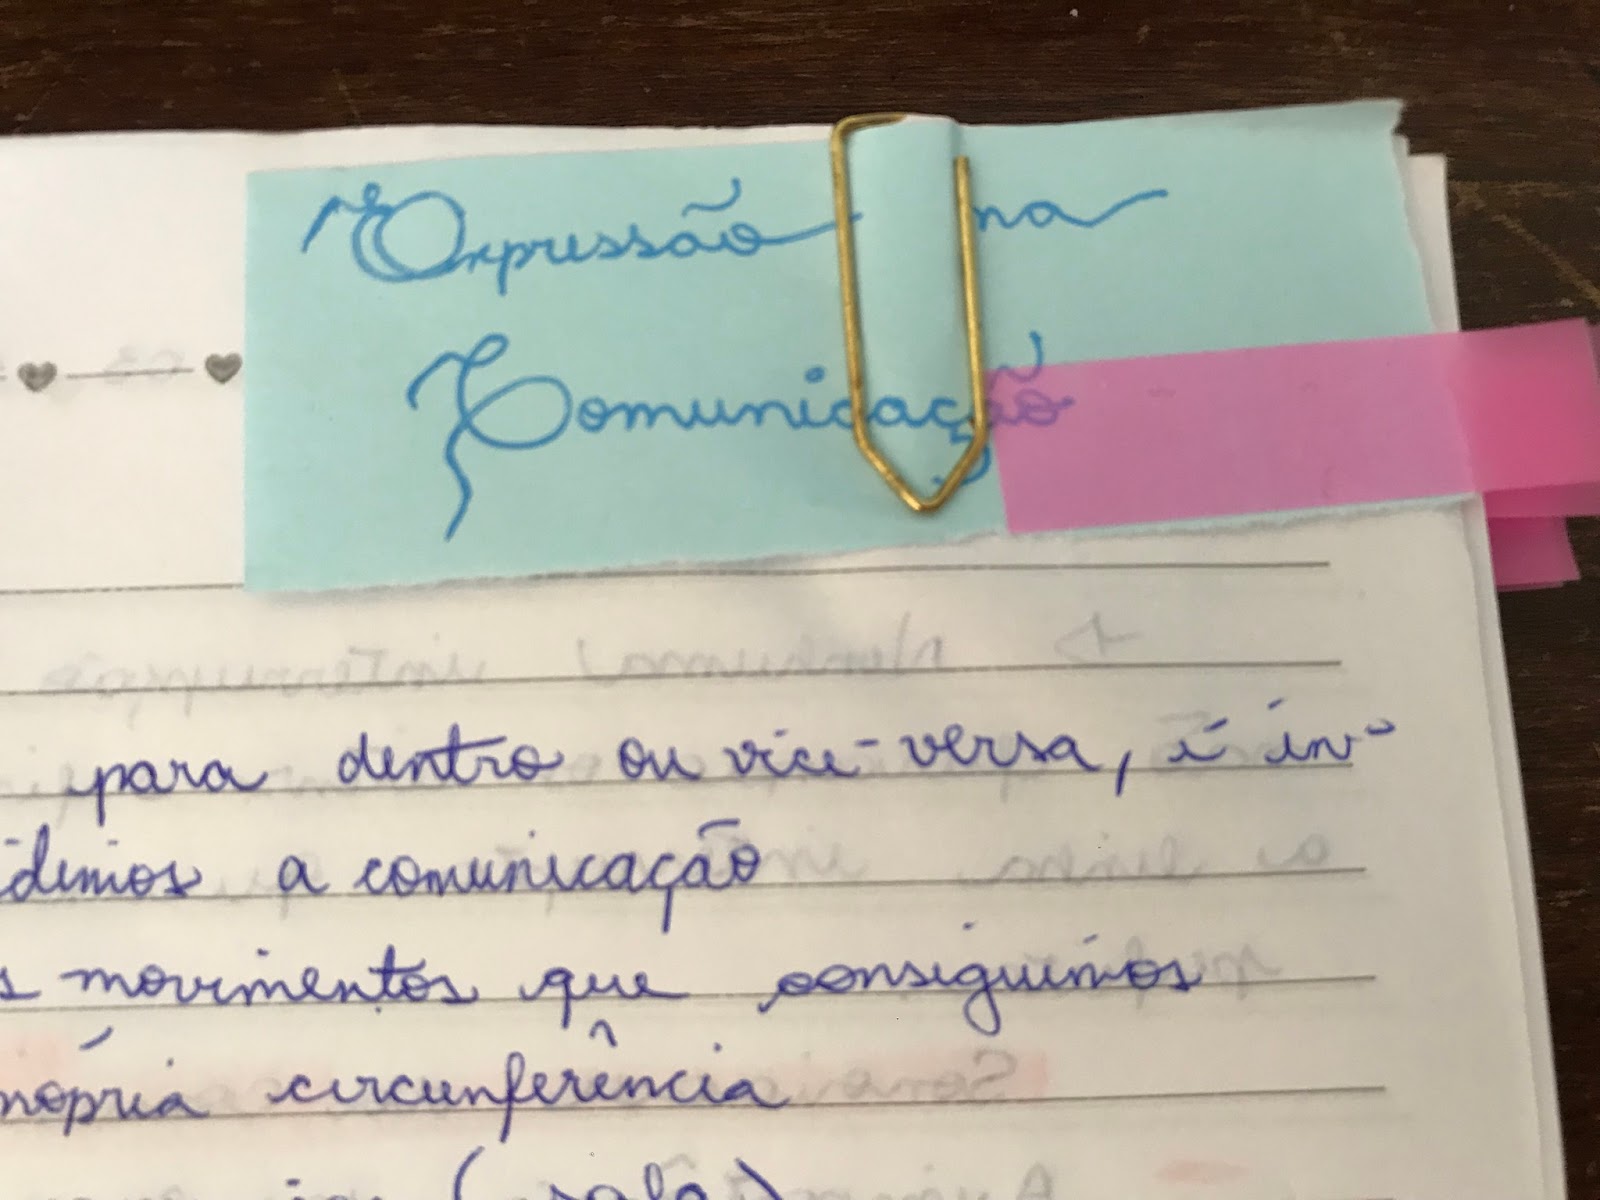 Expressão na
Comunicação
para dentro ou vice-versa, é in-
dimos a comunicação
movimentos que conseguimos
circunferência
(sala)